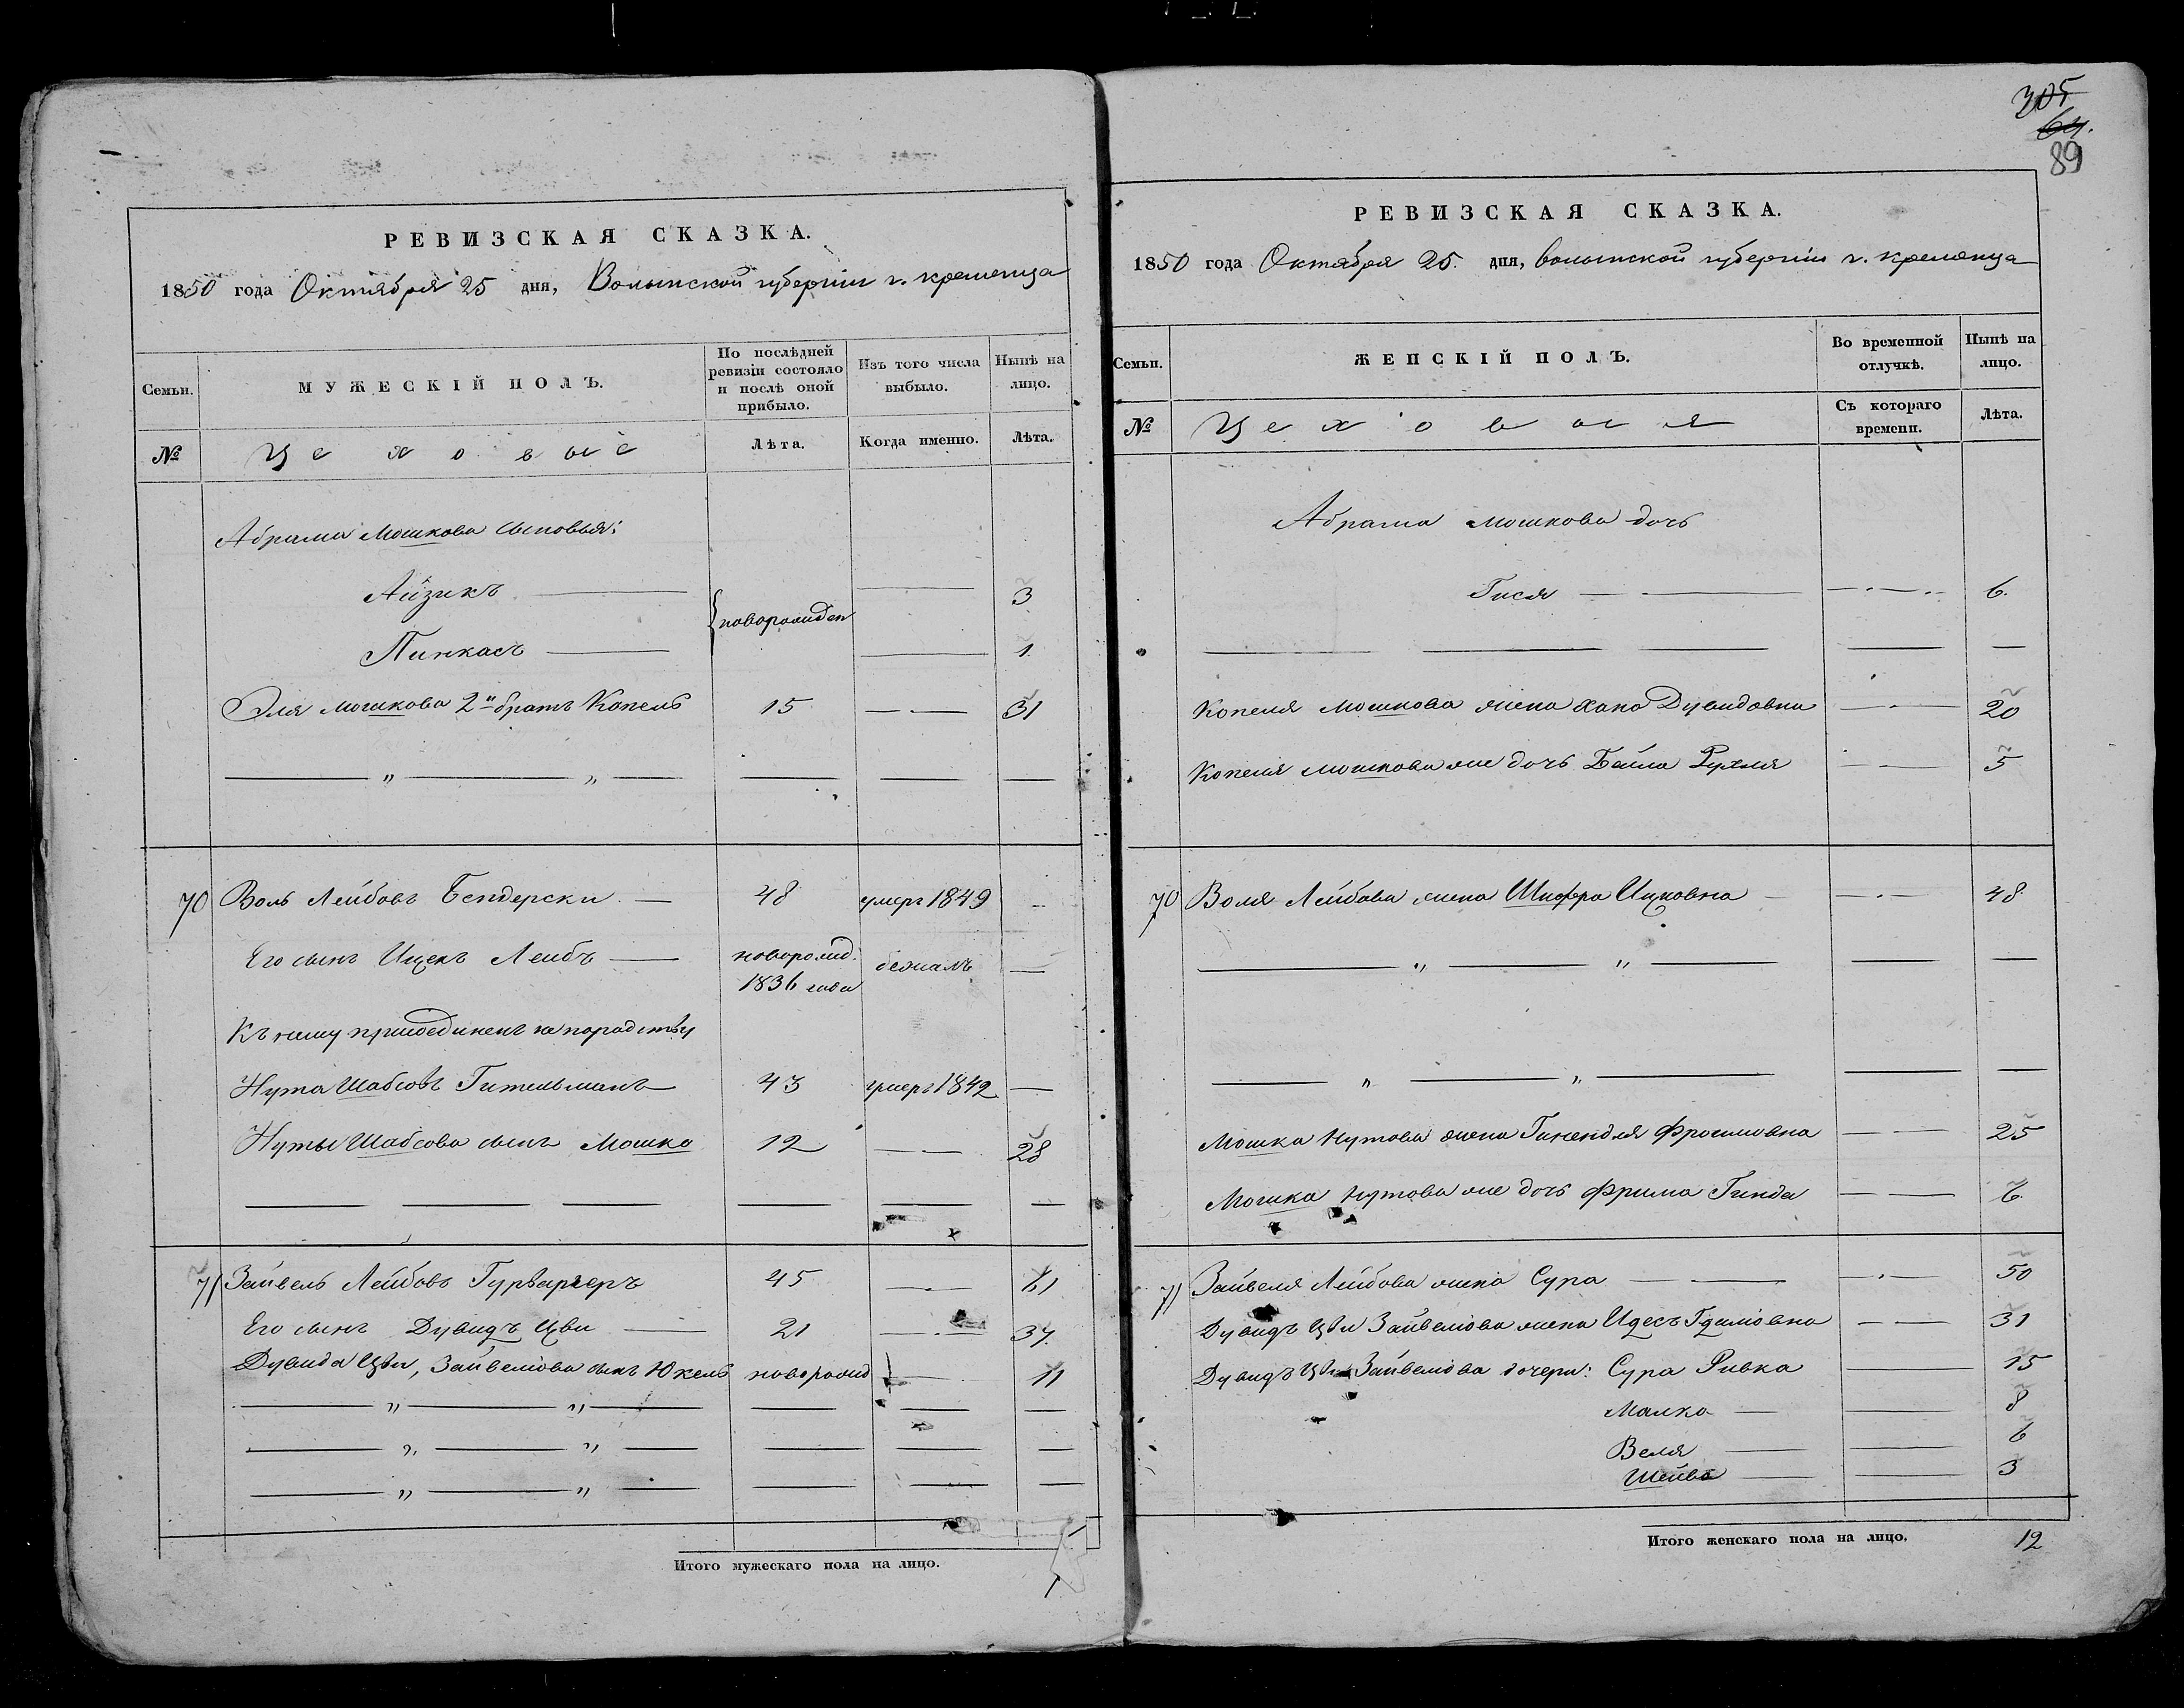 305
64.
89
РЕВИЗСКАЯ СКАЗКА.
1850 года Октября 25 дня, Волынской губернiи г. кременца
Семьи. МУЖЕСКIЙ ПОЛЪ. По послѣдней ревизiи состояло и послѣ оной прибыло. Изъ того числа выбыло. Нынѣ на лицо.
№ Цеховые Лѣта. Когда именно. Лѣта.
Абрама Мошкова сыновья:
Айзикъ 3
новорожден
Пинкасъ 1
Эля Мошкова 2й братъ Копель 15 31
70 Воль Лейбовъ Бендерски 48 умеръ 1849
Его сынъ Ицекъ Лейбъ новорожд. 1836 года бежалъ
Къ нему присоединенъ по родству
Нута Шабсовъ Гительманъ 43 умеръ 1842
Нуты Шабсова сынъ Мошко 12 28
71 Зайвель Лейбовъ 45 61
Его сынъ Дувидъ Цви 21 37
Дувида Цви, Зайвелiова сынъ Юкель новорожд 11
Итого мужескаго пола на лицо.
РЕВИЗСКАЯ СКАЗКА.
1850 года Октября 25. дня, волынской губернiи г. кременца
Семьи. ЖЕНСКIЙ ПОЛЪ. Во временной отлучкѣ. Нынѣ на лицо.
№ Цеховыя Съ котораго времени. Лѣта.
Абрама Мошкова дочь
Гися 6.
Копеля Мошкова жена Хана Дувидовна 20
Копеля Мошкова же дочь Байла Рухля 5
70 Воля Лейбова жена Шифра Ицковна 48
Мошка Нутова жена Гинендля Фроимовна 25
Мошка Нутова же дочь Фрима Гинда 6
71 Зайвеля Лейбова жена Сура 50
Дувидъ Цви Зайвелiова жена Идесъ 31
Дувидъ Цви Зайвелiова дочери: Сура Ривка 15
Малка 8
Веля 6
Шейва 3
Итого женскаго пола на лицо. 12